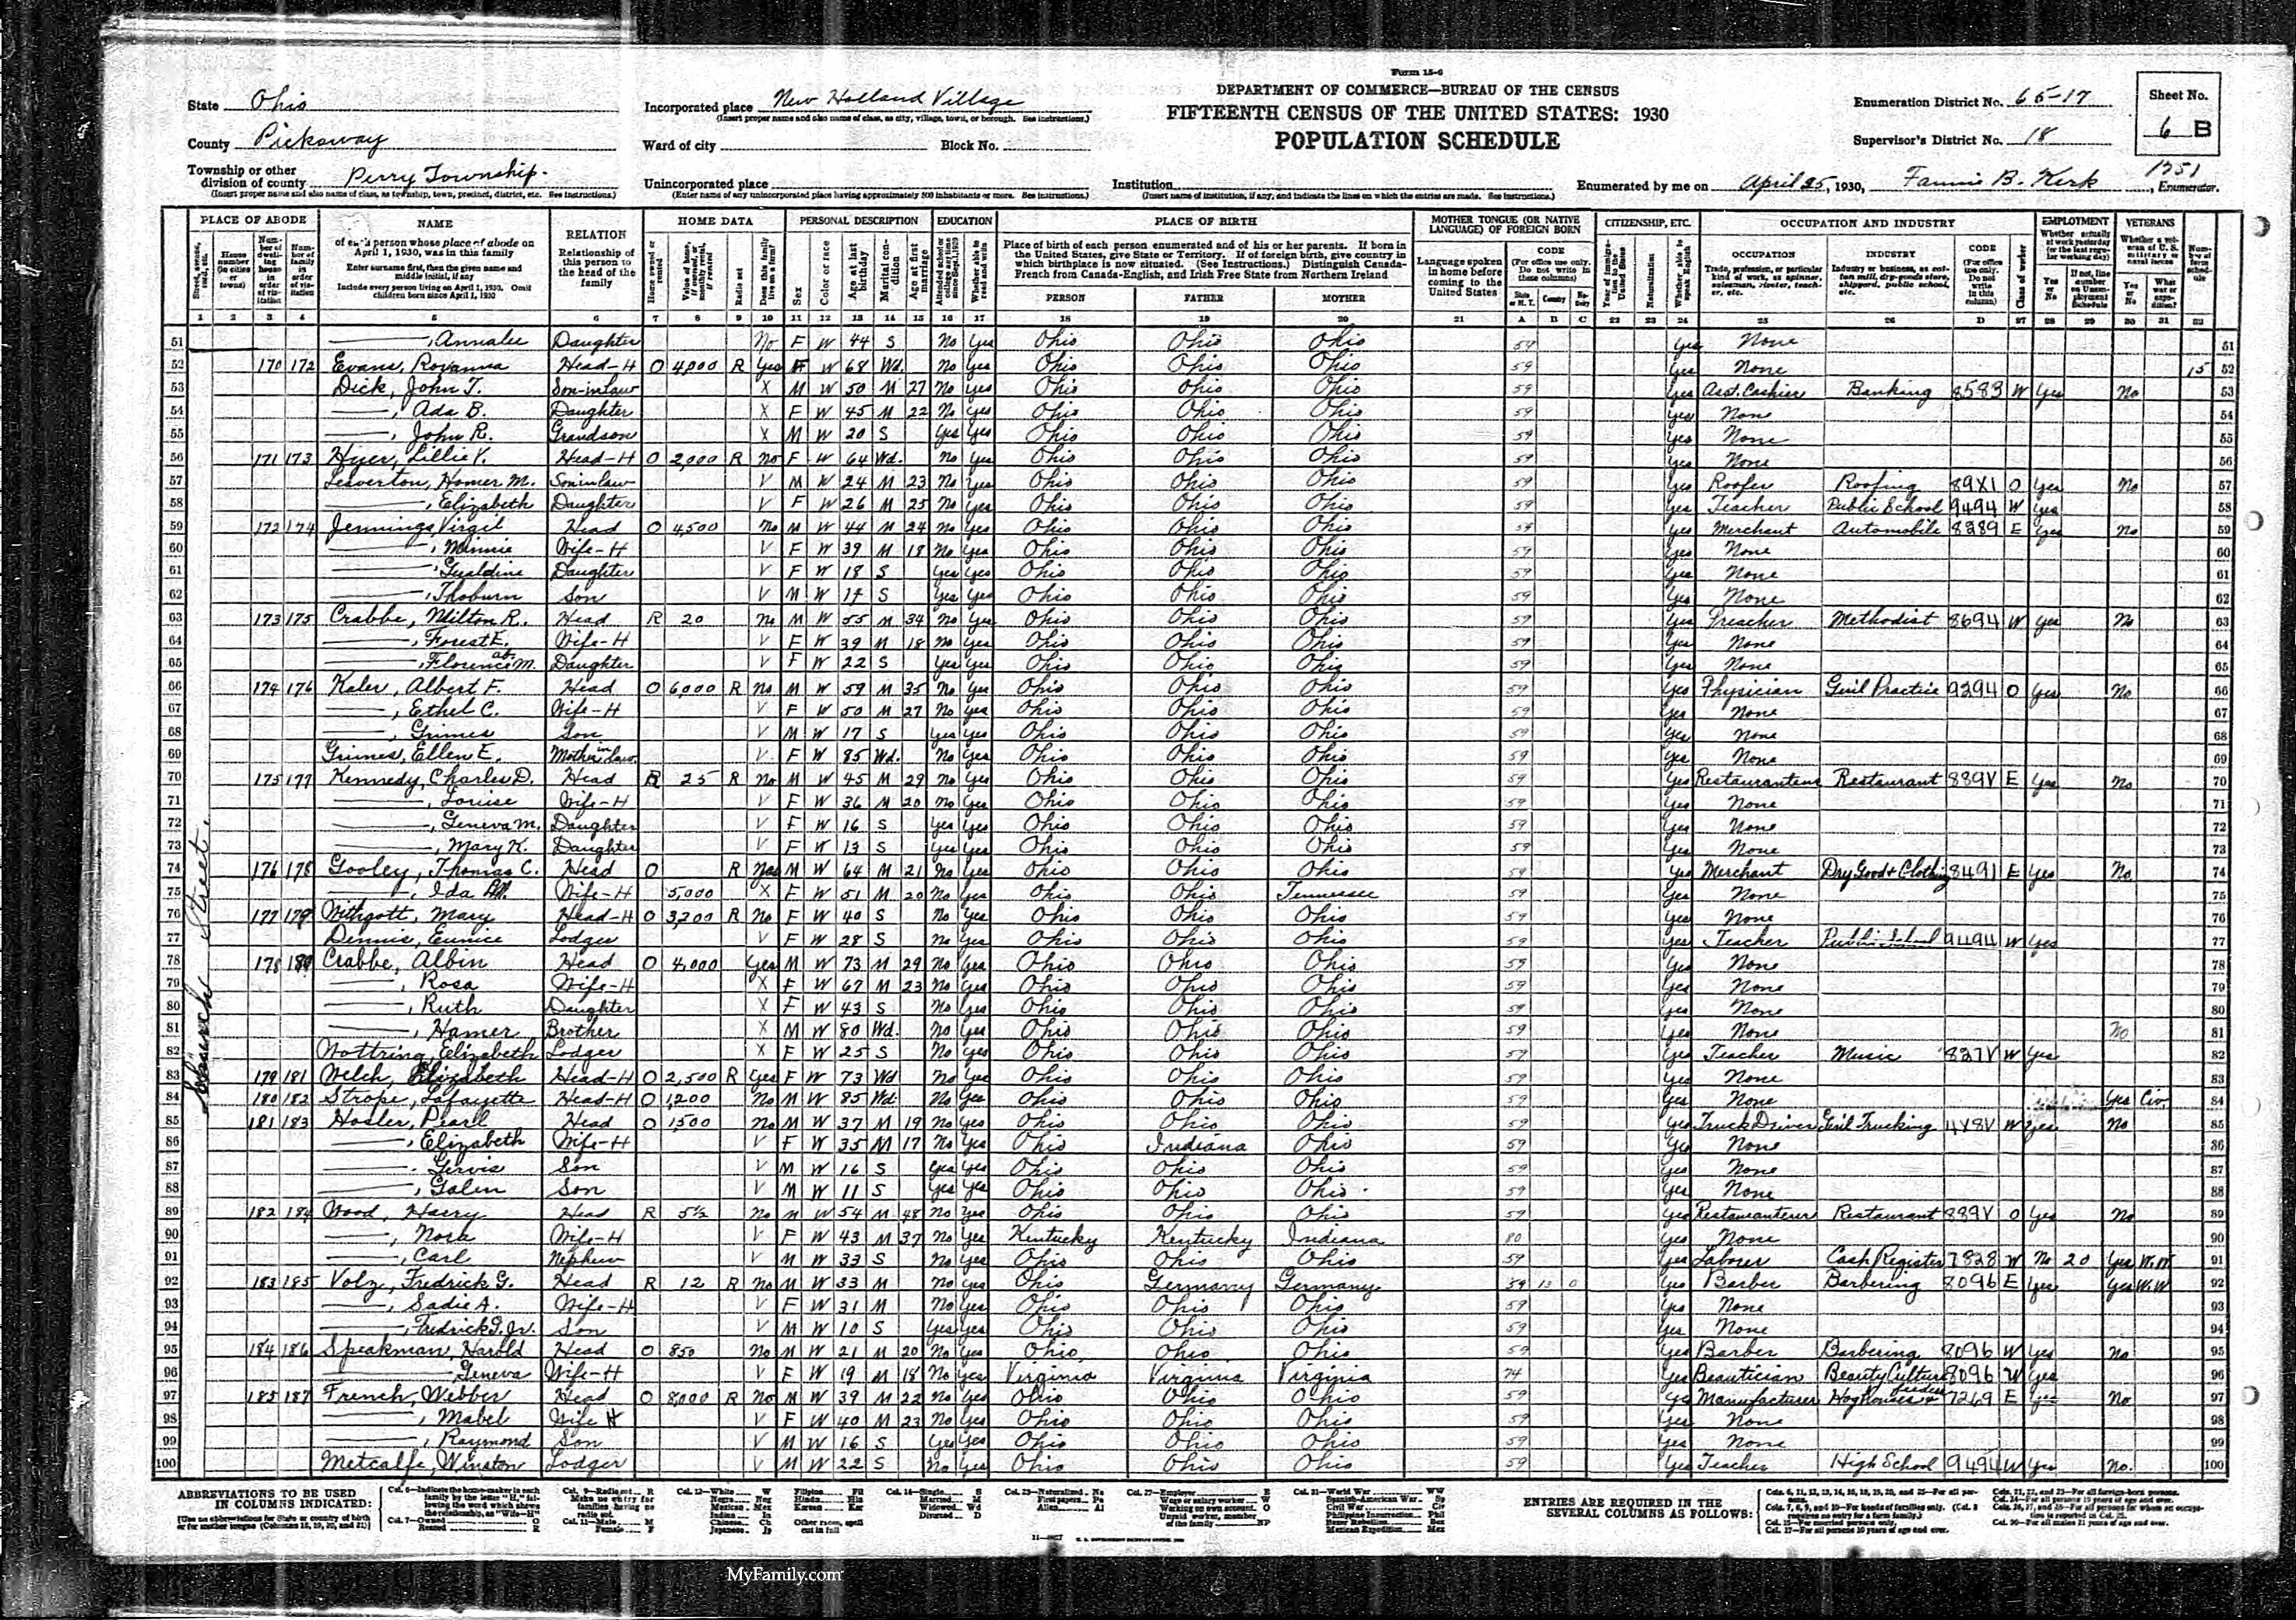 Form 15-6
State Ohio
Incorporated place New Holland Village
(Insert proper name and also name of class, as city, village, town, or borough. See instructions.)
DEPARTMENT OF COMMERCE—BUREAU OF THE CENSUS
FIFTEENTH CENSUS OF THE UNITED STATES: 1930
POPULATION SCHEDULE
Enumeration District No. 65-17
Supervisor's District No. 18
Sheet No.
6 B
1751
County Pickaway
Ward of city
Block No.
Township or other division of county Perry Township.
(Insert proper name and also name of class, as township, town, precinct, district, etc. See instructions.)
Unincorporated place
(Enter name of any unincorporated place having approximately 500 inhabitants or more. See instructions.)
Institution
(Insert name of institution, if any, and indicate the lines on which the entries are made. See instructions.)
Enumerated by me on April 25, 1930, Fannie B. Kirk, Enumerator.
PLACE OF ABODE NAME RELATION HOME DATA PERSONAL DESCRIPTION EDUCATION PLACE OF BIRTH MOTHER TONGUE (OR NATIVE LANGUAGE) OF FOREIGN BORN CITIZENSHIP, ETC. OCCUPATION AND INDUSTRY EMPLOYMENT VETERANS
PERSON FATHER MOTHER
1 2 3 4 5 6 7 8 9 10 11 12 13 14 15 16 17 18 19 20 21 A B C 22 23 24 25 26 D 27 28 29 30 31 32
51 , Annalee Daughter No F W 44 S No Yes Ohio Ohio Ohio 59 Yes None 51
52 170 172 Evans, Rovanna Head-H O 4,000 R Yes F W 68 Wd. No Yes Ohio Ohio Ohio 59 Yes None 15 52
53 Dick, John T. Son-in-law X M W 50 M 27 No Yes Ohio Ohio Ohio 59 Yes Asst. Cashier Banking 8583 W Yes No 53
54 , Ada B. Daughter X F W 45 M 22 No Yes Ohio Ohio Ohio 59 Yes None 54
55 , John R. Grandson X M W 20 S Yes Yes Ohio Ohio Ohio 59 Yes None 55
56 171 173 Hyer, Lillie V. Head-H O 2,000 R No F W 64 Wd. No Yes Ohio Ohio Ohio 59 Yes None 56
57 Leaverton, Homer M. Son in law V M W 24 M 23 No Yes Ohio Ohio Ohio 59 Yes Roofer Roofing 89X1 O Yes No 57
58 , Elizabeth Daughter V F W 26 M 25 No Yes Ohio Ohio Ohio 59 Yes Teacher Public School 9494 W Yes 58
59 172 174 Jennings, Virgil Head O 4,500 No M W 44 M 24 No Yes Ohio Ohio Ohio 59 Yes Merchant Automobile 8289 E Yes No 59
60 , Minnie Wife-H V F W 39 M 18 No Yes Ohio Ohio Ohio 59 Yes None 60
61 , Gualdine Daughter V F W 18 S Yes Yes Ohio Ohio Ohio 59 Yes None 61
62 , Thoburn Son V M W 14 S Yes Yes Ohio Ohio Ohio 59 Yes None 62
63 173 175 Crabbe, Milton R. Head R 20 No M W 55 M 34 No Yes Ohio Ohio Ohio 59 Yes Preacher Methodist 8694 W Yes No 63
64 , Forest E. Wife-H V F W 39 M 18 No Yes Ohio Ohio Ohio 59 Yes None 64
65 , Florence M. ab. Daughter V F W 22 S Yes Yes Ohio Ohio Ohio 59 Yes None 65
66 174 176 Kaler, Albert F. Head O 6,000 R No M W 59 M 35 No Yes Ohio Ohio Ohio 59 Yes Physician Gen'l Practice 9294 O Yes No 66
67 , Ethel C. Wife-H V F W 50 M 27 No Yes Ohio Ohio Ohio 59 Yes None 67
68 , Grimes Son V M W 17 S Yes Yes Ohio Ohio Ohio 59 Yes None 68
69 Grimes, Ellen E. Mother in law V F W 85 Wd. No Yes Ohio Ohio Ohio 59 Yes None 69
70 175 177 Kennedy, Charles D. Head R 25 R No M W 45 M 29 No Yes Ohio Ohio Ohio 59 Yes Restauranteur Restaurant 889V E Yes No 70
71 , Louise Wife-H V F W 36 M 20 No Yes Ohio Ohio Ohio 59 Yes None 71
72 , Geneva M. Daughter V F W 16 S Yes Yes Ohio Ohio Ohio 59 Yes None 72
73 , Mary K. Daughter V F W 13 S Yes Yes Ohio Ohio Ohio 59 Yes None 73
74 176 178 Gooley, Thomas C. Head O R M W 64 M 21 No Yes Ohio Ohio Ohio 59 Yes Merchant Dry Good & Clothing 8491 E Yes No 74
75 , Ida M. Wife-H 5,000 X F W 51 M 20 No Yes Ohio Ohio Tennessee 59 Yes None 75
76 177 179 Withgott, Mary Head-H O 3,200 R No F W 40 S No Yes Ohio Ohio Ohio 59 Yes None 76
77 Dennis, Eunice Lodger V F W 28 S No Yes Ohio Ohio Ohio 59 Yes Teacher Public School 9494 W Yes 77
78 178 180 Crabbe, Albin Head O 4,000 Yes M W 73 M 29 No Yes Ohio Ohio Ohio 59 Yes None 78
79 , Rosa Wife-H X F W 67 M 23 No Yes Ohio Ohio Ohio 59 Yes None 79
80 , Ruth Daughter X F W 43 S No Yes Ohio Ohio Ohio 59 Yes None 80
81 , Hamer Brother X M W 80 Wd. No Yes Ohio Ohio Ohio 59 Yes None No 81
82 Wottring, Elizabeth Lodger X F W 25 S No Yes Ohio Ohio Ohio 59 Yes Teacher Music 827V W Yes 82
83 179 181 Welch, Elizabeth Head-H O 2,500 R Yes F W 73 Wd No Yes Ohio Ohio Ohio 59 Yes None 83
84 180 182 Strope, Lafayette Head-H O 1,200 No M W 85 Wd. No Yes Ohio Ohio Ohio 59 Yes None Yes Civ. 84
85 181 183 Hosler, Pearl Head O 1500 No M W 37 M 19 No Yes Ohio Ohio Ohio 59 Yes Truck Driver Gen'l Trucking 4X8V W Yes No 85
86 , Elizabeth Wife-H V F W 35 M 17 No Yes Ohio Indiana Ohio 59 Yes None 86
87 , Gervis Son V M W 16 S Yes Yes Ohio Ohio Ohio 59 Yes None 87
88 , Galen Son V M W 11 S Yes Yes Ohio Ohio Ohio 59 Yes None 88
89 182 184 Wood, Harry Head R 5½ No M W 54 M 48 No Yes Ohio Ohio Ohio 59 Yes Restauranteur Restaurant 889V O Yes No 89
90 , Nora Wife-H V F W 43 M 37 No Yes Kentucky Kentucky Indiana 80 Yes None 90
91 , Carl Nephew V M W 33 S No Yes Ohio Ohio Ohio 59 Yes Laborer Cash Register 7828 W No 20 Yes W.W 91
92 183 185 Volz, Fredrick G. Head R 12 R No M W 33 M No Yes Ohio Germany Germany 59 13 0 Yes Barber Barbering 8096 E Yes Yes W.W 92
93 , Sadie A. Wife-H V F W 31 M No Yes Ohio Ohio Ohio 59 Yes None 93
94 , Fredrick G. Jr. Son V M W 10 S Yes Yes Ohio Ohio Ohio 59 Yes None 94
95 184 186 Speakman, Harold Head O 850 No M W 21 M 20 No Yes Ohio Ohio Ohio 59 Yes Barber Barbering 8096 W Yes No 95
96 Geneva Wife-H V F W 19 M 18 No Yes Virginia Virginia Virginia 74 Yes Beautician Beauty Culture 8096 W Yes 96
97 185 187 French, Webber Head O 8,000 R No M W 39 M 22 No Yes Ohio Ohio Ohio 59 Yes Manufacturer Hog Houses & feeders 7269 E Yes No 97
98 , Mabel Wife H V F W 40 M 23 No Yes Ohio Ohio Ohio 59 Yes None 98
99 , Raymond Son V M W 16 S Yes Yes Ohio Ohio Ohio 59 Yes None 99
100 Metcalfe, Winston Lodger V M W 22 S No Yes Ohio Ohio Ohio 59 Yes Teacher High School 9494 W Yes No. 100
Street.
ABBREVIATIONS TO BE USED IN COLUMNS INDICATED:
ENTRIES ARE REQUIRED IN THE SEVERAL COLUMNS AS FOLLOWS:
MyFamily.com